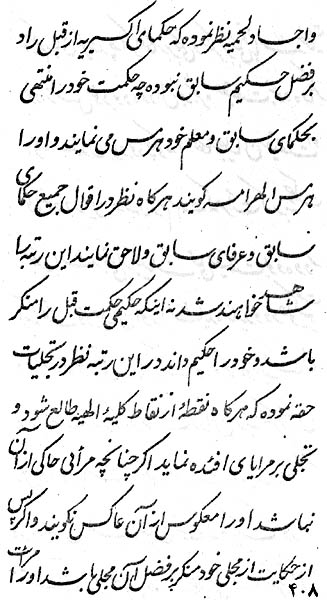 واجساد لحمیه نظر نموده که حکمای اکسیریه از قبل راد
بر فضل حکیم سابق نبوده چه حکمت خود را منتهی
بحکمای سابق و معلم خود هرمس می نمایند و اورا
هرمس الهرامسه کویند هرکاه نظر در اقوال جمیع حکمای
سابق و عرفای سابق و لاحق نمایند این رتبه را
شاهد خواهند شد نه اینکه حکیمی حکمت قبل را منکر
باشد و خود را حکیم داند در این رتبه نظر در تجلیات
حقه نموده که هرکاه نقطهٔ از نقاط کلیهٔ الهیه طالع شود و
تجلی بر مرایای افئده نماید اکر چنانچه مرآتی حاکی از آن
نباشد اورا معکوس از آن عاکس نکویند و اکر پس
از حکایت از مجلی خود منکر بر فضل آن مجلی باشد اورا مرآت
۴۰۸